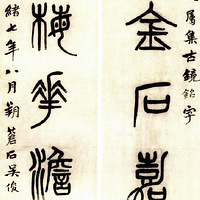 屬集古鏡銘字
金石嘉
梅華澹
緒七年八月朔蒼石吳俊